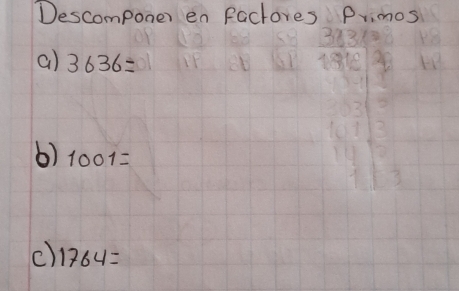 Descomponer en factores Primos
a) 3636=
b) 1001=
c) 1764=